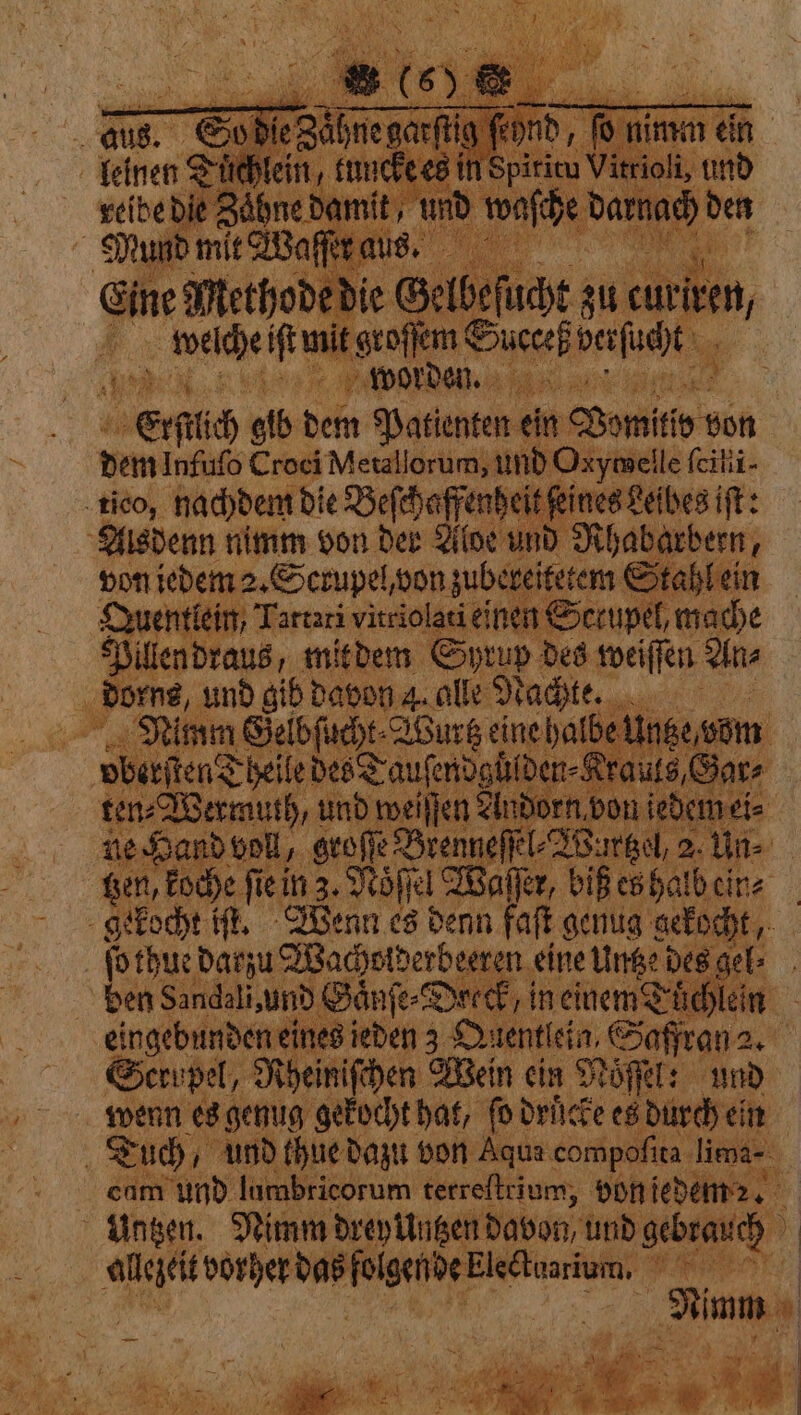 (6)
aus. So die Zaͤhne garſtig ſeynd, ſo nimm ein
leinen Tuͤchlein, tuncke es in Spiritu Vitrioli, und
reibe die Zaͤhne damit, und waſche darnach den
Mund mit Waſſer aus.
Eine Methode die Gelbeſucht zu curiren,
welche iſt mit groſſem Succeß verſucht
worden.
Erſtlich gib dem Patienten ein Vomitiv von
dem Infuſo Croci Metallorum, und Oxymelle ſcilli-
tico, nachdem die Beſchaffenheit ſeines Leibes iſt:
Alsdenn nimm von der Aloe und Rhabarbern,
von iedem 2. Scrupel, von zubereitetem Stahl ein
Quentlein, Tartari vitriolati einen Scrupel, mache
Pillen draus, mit dem Syrup des weiſſen An-
dorns, und gib davon 4. alle Nachte.
Nimm Gelbſucht-Wurtz eine halbe Untze, vom
oberſten Theile des Tauſendguͤlden-Krauts, Gar-
ten-Wermuth, und weiſſen Andorn, von iedem ei-
ne Hand voll, groſſe Brenneſſel-Wurtzel, 2. Un-
tzen, koche ſie in 3. Noͤſſel Waſſer, biß es halb ein-
gekocht iſt. Wenn es denn faſt genug gekocht,
ſo thue darzu Wacholderbeeren eine Untze des gel-
ben Sandali, und Gaͤnſe-Dreck, in einem Tuͤchlein
eingebunden eines ieden 3 Quentlein, Saffran 2.
Scrupel, Rheiniſchen Wein ein Noͤſſel: und
wenn es genug gekocht hat, ſo druͤcke es durch ein
Tuch, und thue dazu von Aqua compoſita lima-
cum und lumbricorum terreſtrium, von iedem 2.
Untzen. Nimm drey Untzen davon, und gebrauch
allezeit vorher das folgende Electuarium.
Nimm